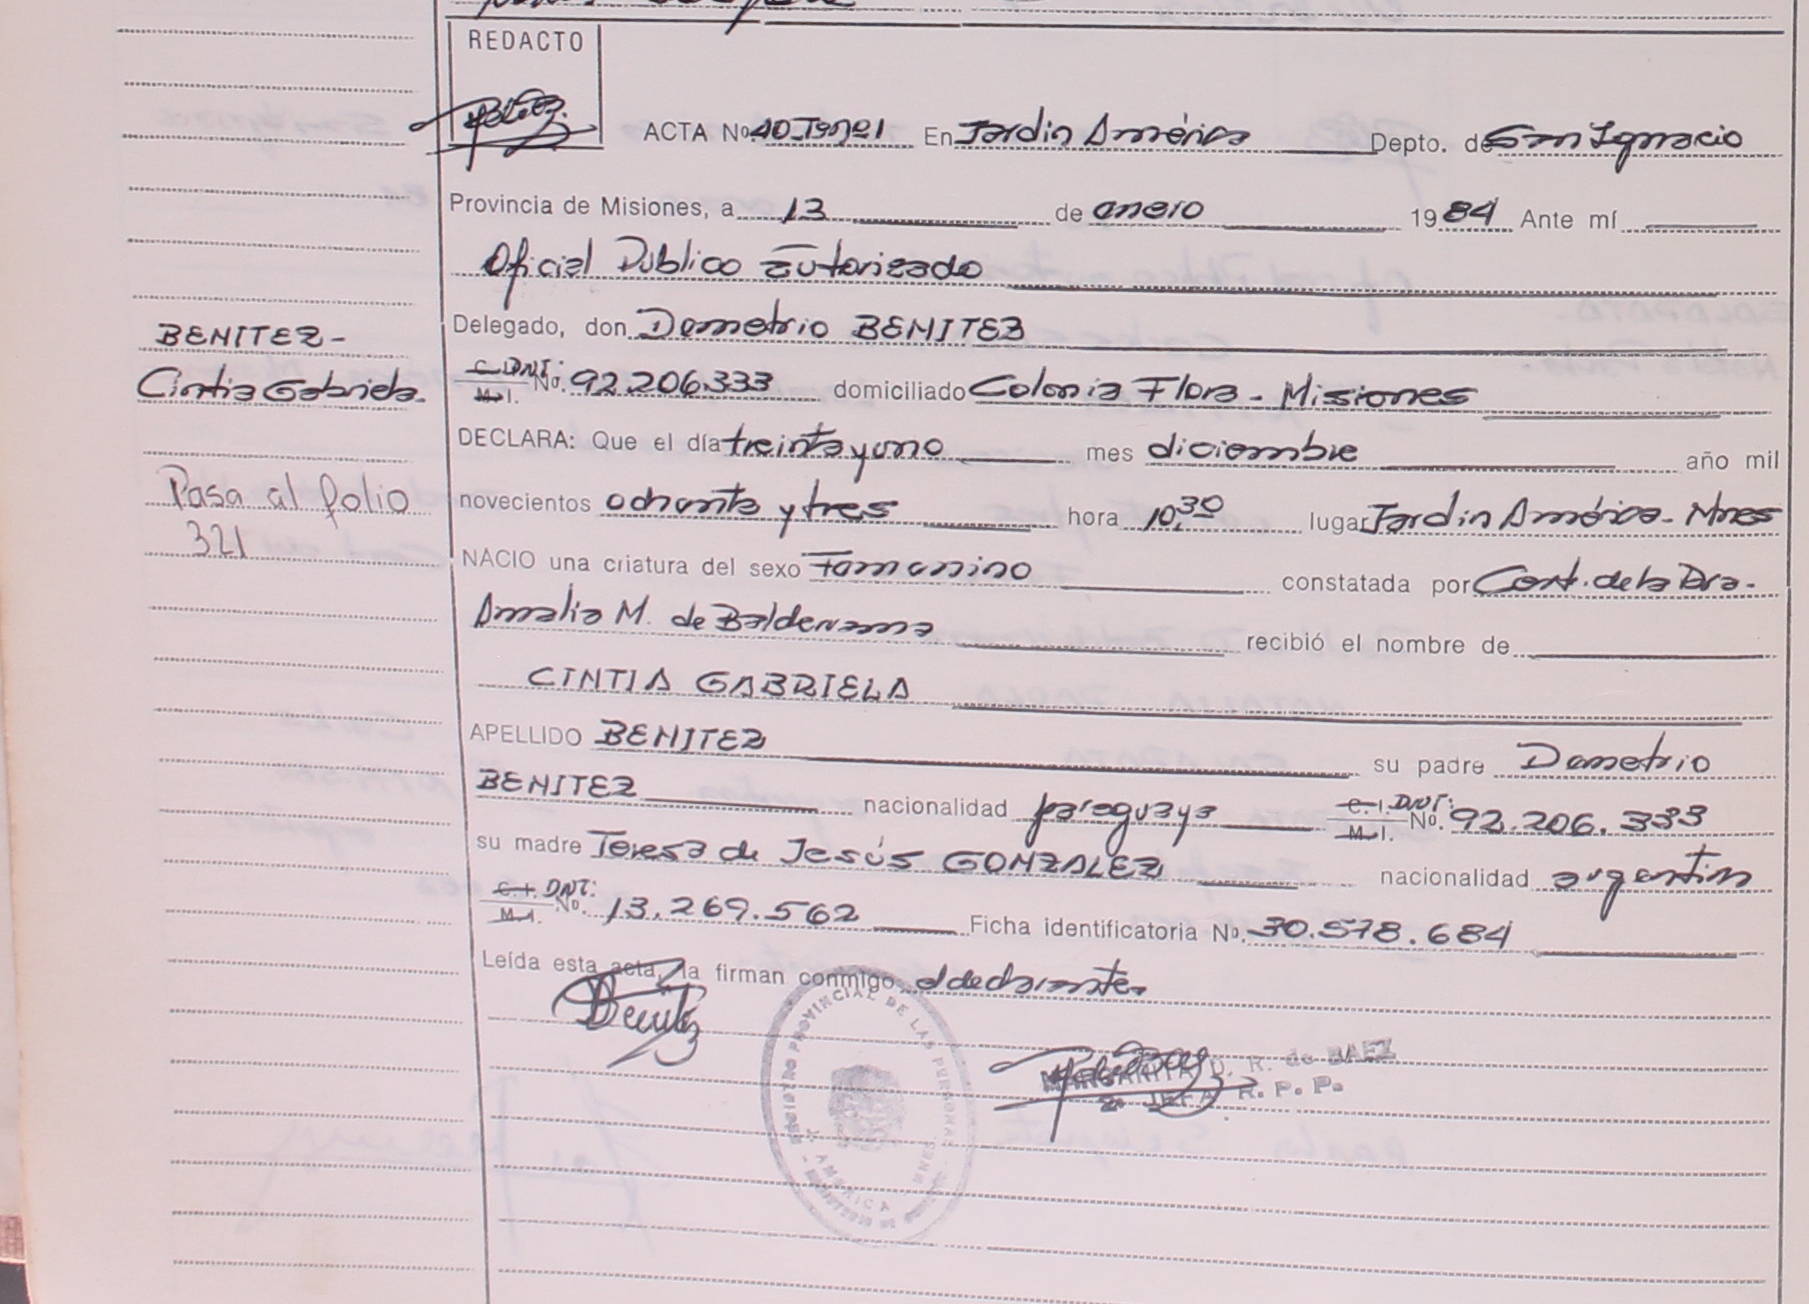 REDACTO
ACTA Nº 40 Tº Iº En Jardín América Depto. de San Ignacio
Provincia de Misiones, a 13 de enero 1984 Ante mí
Oficial Público autorizado
Delegado, don Demetrio BENITEZ
BENITEZ-
Cintia Gabriela.
C.I. DNI: M.I. No. 92.206.333 domiciliado Colonia Flora - Misiones
DECLARA: Que el día treinta y uno mes diciembre año mil
Pasa al folio
321
novecientos ochenta y tres hora 10,30 lugar Jardín América - Mnes
NACIO una criatura del sexo Femenino constatada por Cert. de la Dra.
Amalia M. de Balderrama recibió el nombre de
CINTIA GABRIELA
APELLIDO BENITEZ su padre Demetrio
BENITEZ nacionalidad paraguaya C.I. DNI: M.I. No. 92.206.333
su madre Teresa de Jesús GONZALEZ nacionalidad argentina
C.I. DNI: M.I. No. 13.269.562 Ficha identificatoria No. 30.578.684
Leída esta acta, la firman conmigo el declarante.
Benitez
REGISTRO PROVINCIAL DE LAS PERSONAS
AMERICA
MARGARITA D. R. de BAEZ
2a JEFA R. P. P.